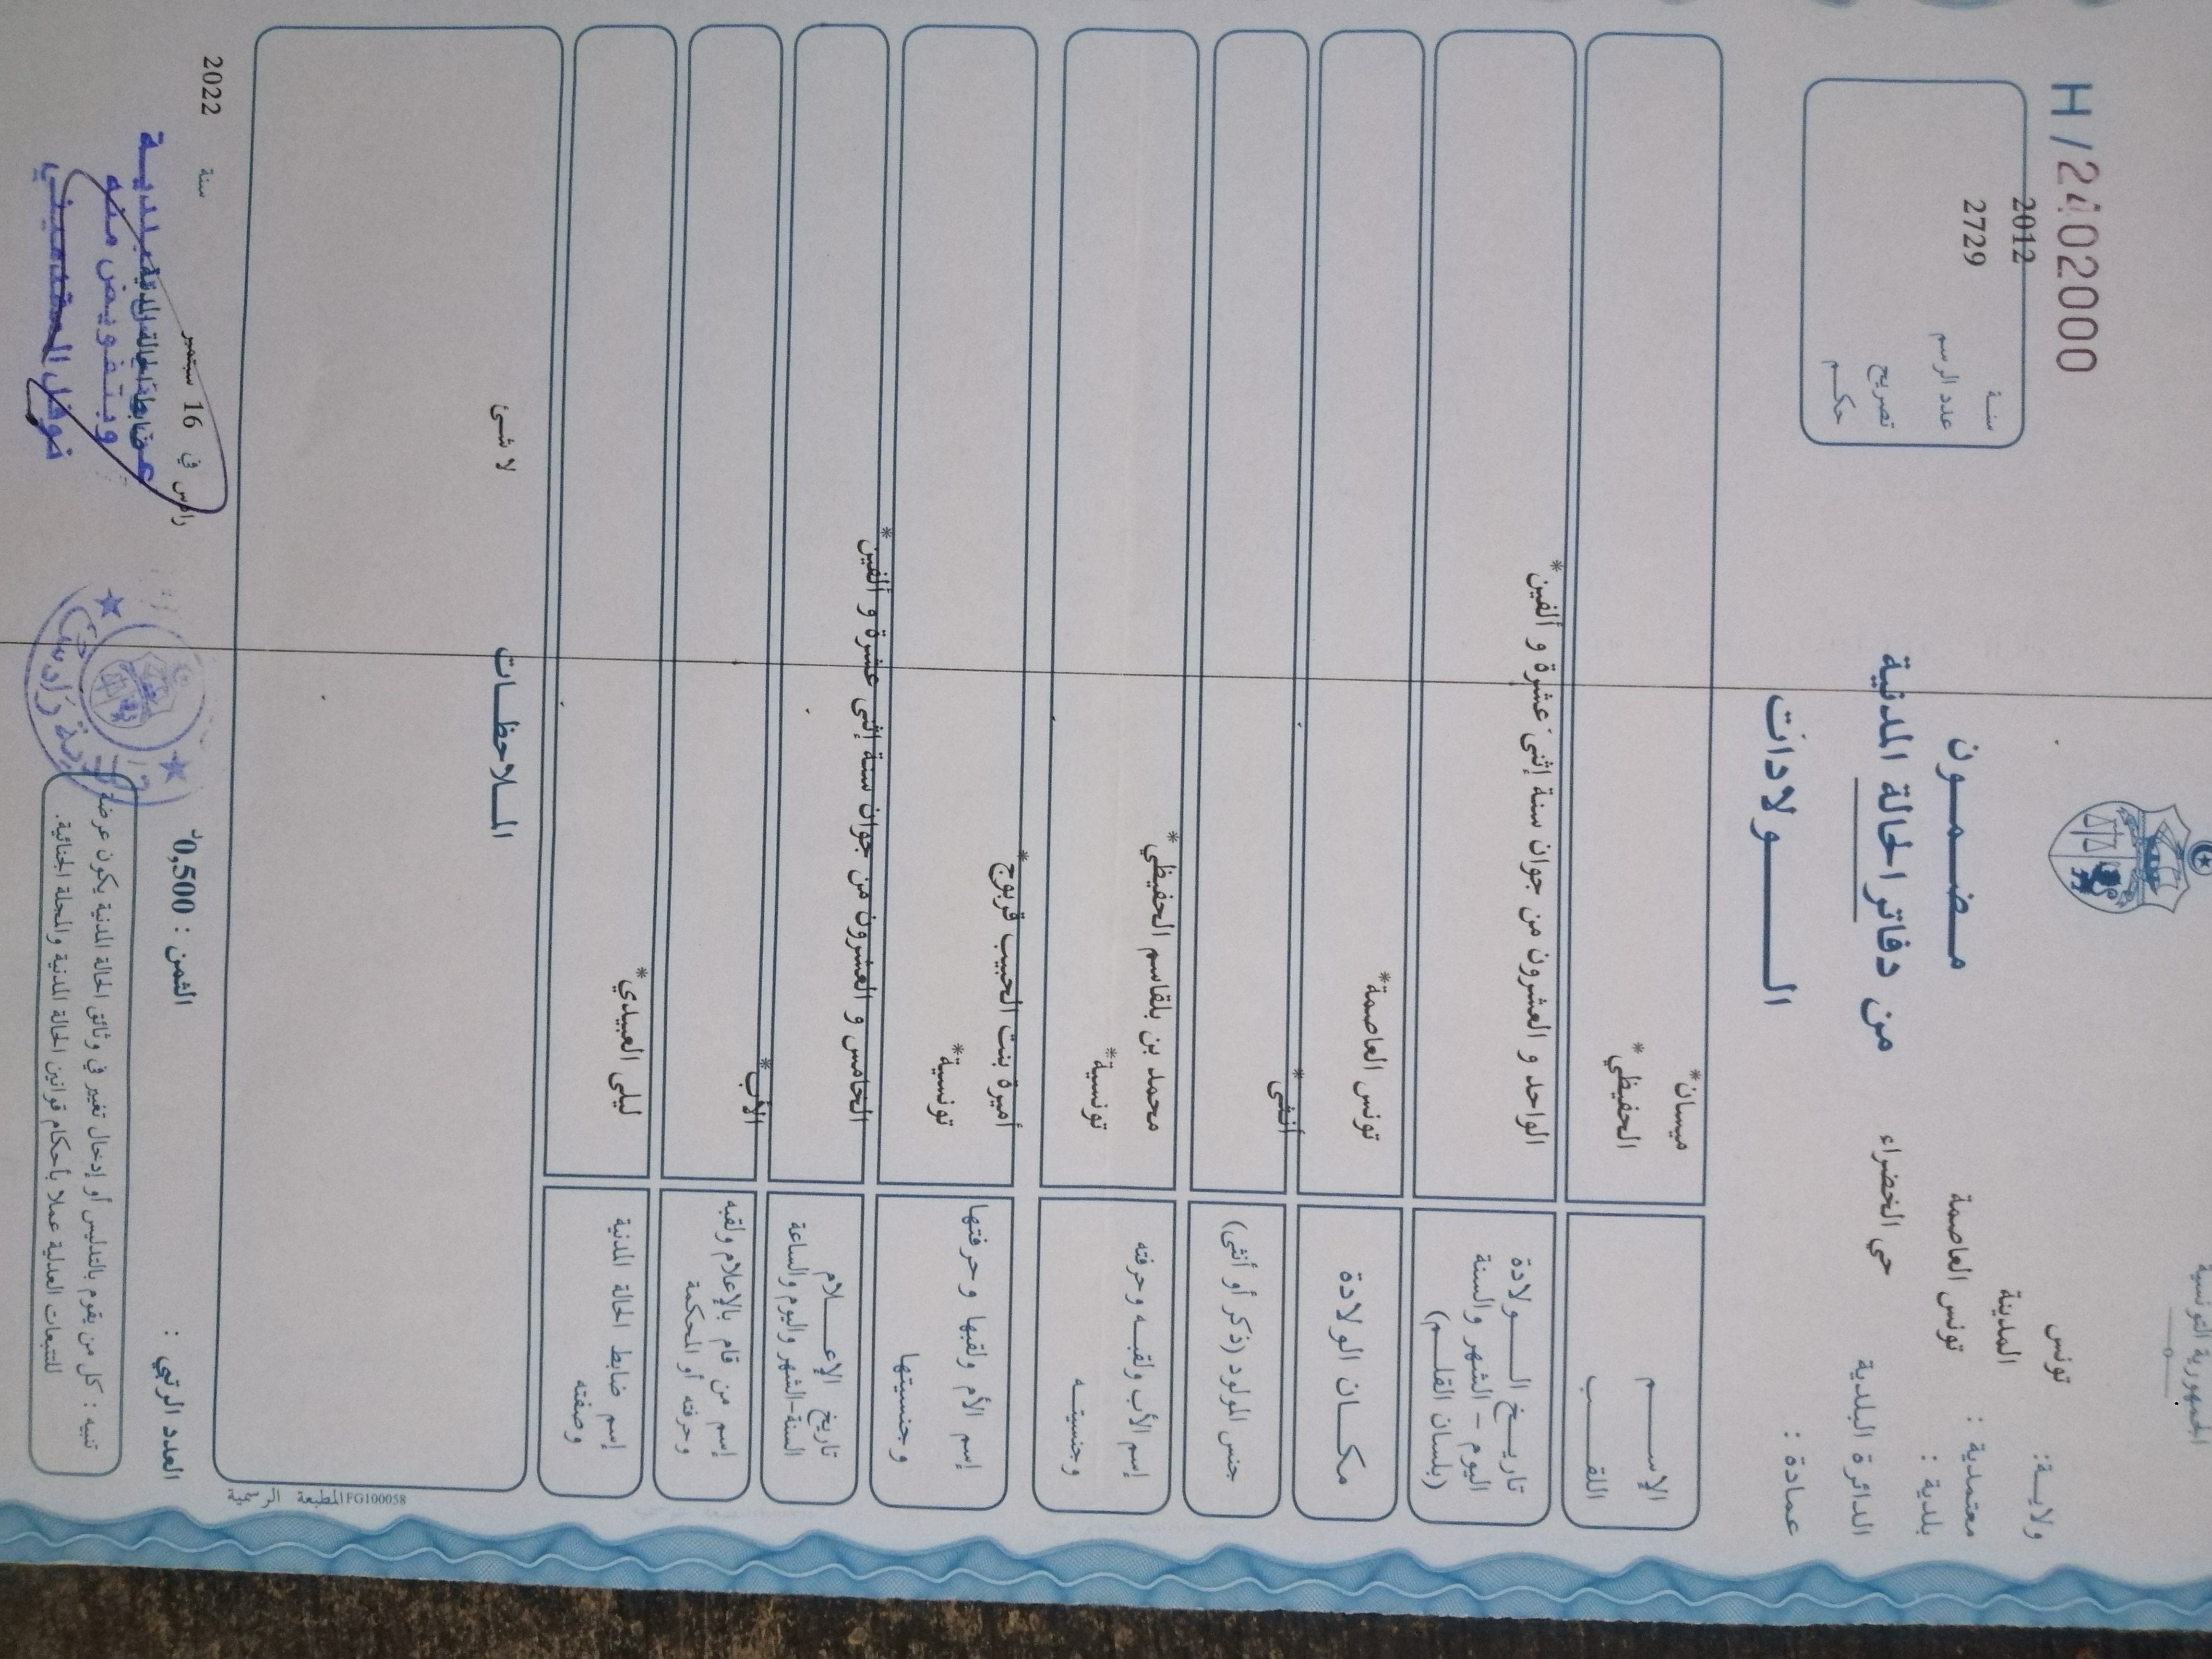 الجمهورية التونسية
H/2402000
ولايـــة: تونس
معتمدية : المدينة
بلدية : تونس العاصمة
الدائرة البلدية حي الخضراء
عمادة :
مـضـــمـــون
من دفاتر الحالة المدنية
الـــــــولادات
سنـة 2012
عدد الرسم 2729
تصريح
حكـم
الإســـــم
ميسان*
اللقـــــب
الحفيظي*
تاريــخ الـــــولادة
اليوم – الشهر والسنة
(بلسان القلـــم)
الواحد و العشرون من جوان سنة إثنى عشرة و ألفين*
مكــان الولادة
تونس العاصمة*
جنس المولود (ذكر أو أنثى)
أنثى*
إسم الأب ولقبـــه وحرفته
محمد بن بلقاسم الحفيظي*
وجنسيتــه
تونسية*
إسم الأم ولقبها وحرفتها
أميرة بنت الحبيب قربوج*
وجنسيتها
تونسية*
تاريخ الإعـــــلام
السنة-الشهر واليوم والساعة
الخامس و العشرون من جوان سنة إثنى عشرة و ألفين*
إسم من قام بالإعلام ولقبه
وحرفته أو المحكمة
الأب*
إسم ضابط الحالة المدنية
وصفته
ليلى العبيدي*
المــلاحظــات
لا شئ
المطبعة الرسمية FG100058
العدد الرتبي :
الثمن : 0,500د
رادس في 16 سبتمبر سنة 2022
ضابط الحالة المدنية
وبتفويض منه
بلدية رادس
تنبيه : كل من يقوم بالتدليس أو إدخال تغيير في وثائق الحالة المدنية يكون عرضة
للتتبعات العدلية عملا بأحكام قوانين الحالة المدنية والمجلة الجنائية.